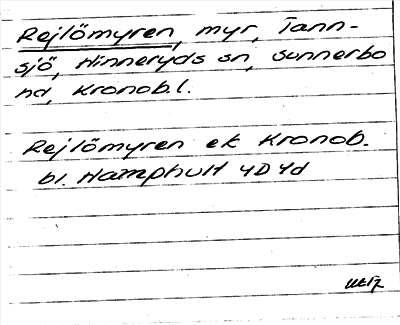 Rejlömyren, myr, Tann-
sjö, Hinneryds sn, Sunnerbo
hd, Kronob.l.
Rejlömyren ek Kronob.
bl. Hamphult 4D 4d